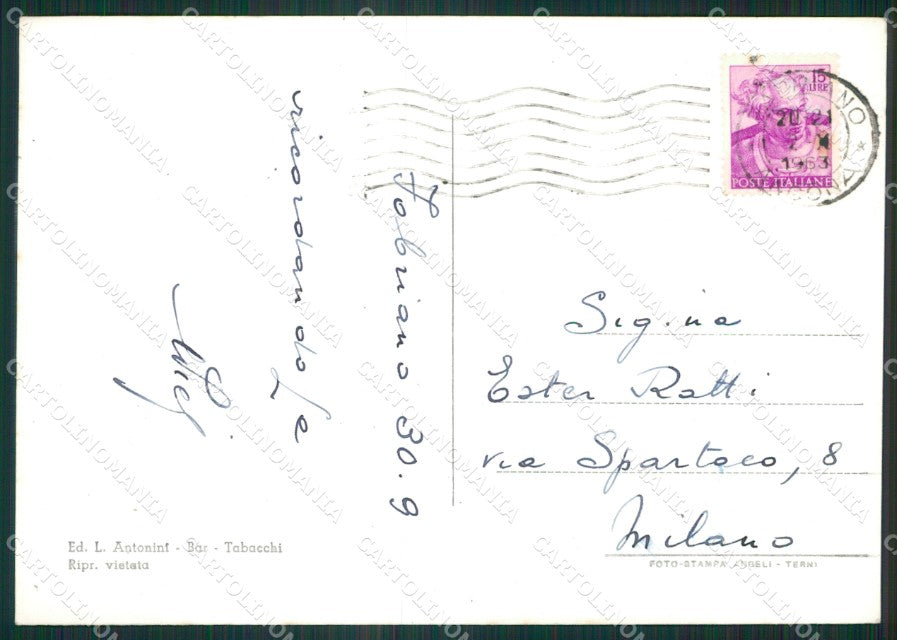 Fabriano 30.9
ricordando La
Sig.na
Ester Ratti
via Spartaco, 8
Milano
15
LIRE
POSTE ITALIANE
20-21
1963
Ed. L. Antonini - Bar - Tabacchi
Ripr. vietata
FOTO-STAMPA ANGELI - TERNI
CARTOLINOMANIA